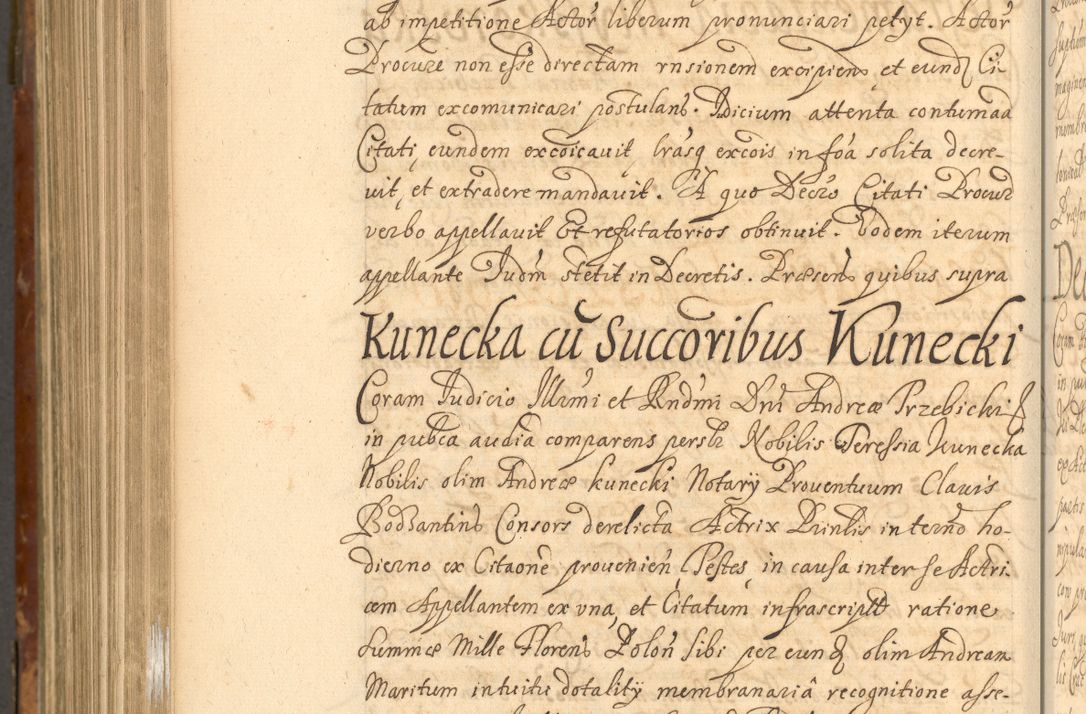 ab impetitione Actor liberum pronunciari petyt. Actor
Procure non esse directam rnsionem excipiens et eund Ci-
tatum excomunicari postulans. Iudicium attenta contumaa
Citati eundem excoicauit, lrasq excois in foa solita decre-
uit, et extradere mandauit. A quo Decro Citati Procur
verbo appellauit Et refutatorios obtinuit. Eodem iterum
appellante Iudm stetit in Decretis. Præsens quibus supra
Kunecka cū Succoribus Kunecki
Coram Iudicio Illrmi et Rndmi Dni Andreæ Trzebicki
in pubca audia comparens perstr Nobilis Teressia Kunecka
Nobilis olim Andreæ Kunecki Notarÿ Prouentuum Clauis
Bodzantins Consors derelicta Actrix Prinlis in termo ho-
dierno ex Citaone prouenien, Testes in causa inter se Actri-
cem Appellantem ex vna, et Citatum infrascript ratione
summæ Mille Florens Polon sibi per eund olim Andream
Maritum intuitu dotalitÿ membranaria recognitione asse-